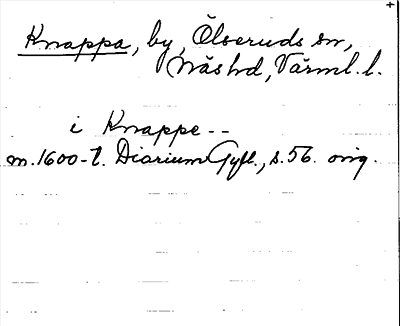 Knappa, by, Ölseruds sn,
Näs hd, Värml. l.
i Knappe--
m. 1600-t. Diarium Gyll., s. 56. orig.